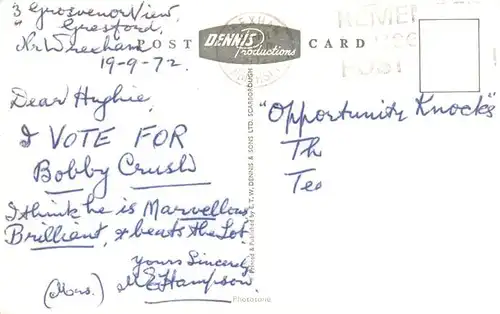 3 Grosvenor View,
" Gresford,
Nr Wrexham
19-9-72.
POST
DENNIS
Productions
CARD
REXHA
REMEM
USE
POST
Dear Hughie,
I VOTE FOR
Bobby Crush
I think he is Marvellous
Brilliant, & beats the Lot,
Yours Sincerely
(Mrs.) M E Hampson.
Photocrome
Printed & Published by E. T. W. DENNIS & SONS LTD. SCARBOROUGH
"Opportunity Knocks"
Th
Tea